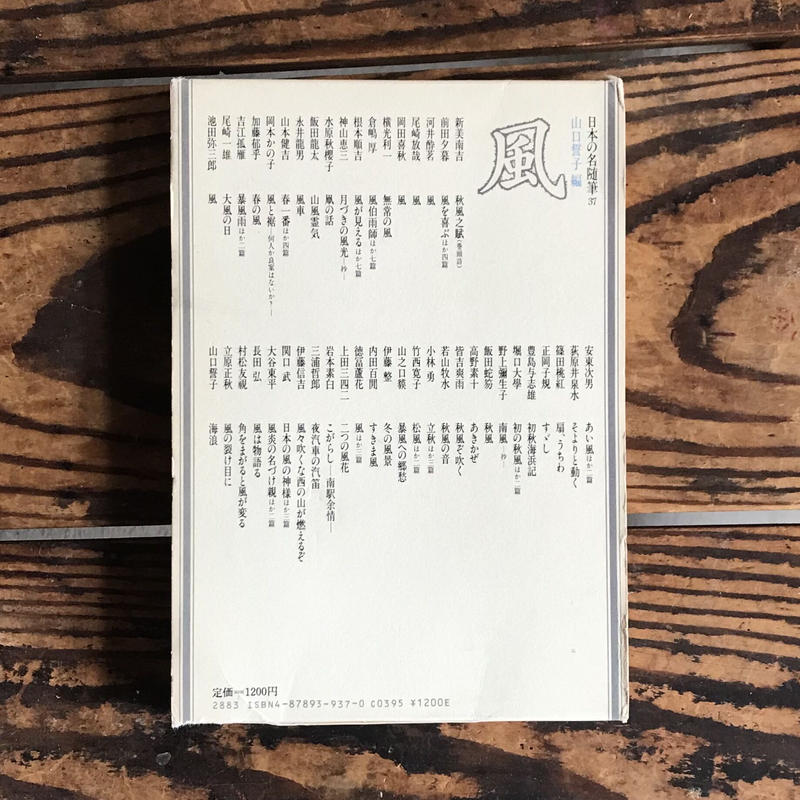 日本の名随筆 37
山口誓子編
風
新美南吉 秋風之賦(巻頭詩)
前田夕暮 風を喜ぶほか四篇
河井酔茗 風
尾崎放哉 風
岡田喜秋 風
横光利一 無常の風
倉嶋 厚 風伯雨師ほか七篇
根本順吉 風が見えるほか七篇
神山恵三 月づきの風光―抄―
水原秋櫻子 の話
飯田龍太 山風霊気
永井龍男 風車
山本健吉 春一番ほか四篇
岡本かの子 風と裾―何人か良案はないか?―
加藤郁乎 春の風
吉江孤雁 暴風雨ほか二篇
尾崎一雄 大風の日
池田弥三郎 風
安東次男 あい風ほか二篇
荻原井泉水 そよりと動く
篠田桃紅 扇、うちわ
正岡子規 すゞし
豊島与志雄 初秋海浜記
堀口大學 初の秋風ほか二篇
野上彌生子 南風―抄―
飯田蛇笏 秋風
高野素十 あきかぜ
皆吉爽雨 秋風ぞ吹く
若山牧水 秋風の音
小林 勇 立秋ほか三篇
竹西寛子 松風ほか二篇
山之口貘 暴風への郷愁
伊藤 整 冬の風景
内田百閒 すきま風
徳冨蘆花 風ほか三篇
上田三四二 二つの風花
岩本素白 こがらし―南駅余情―
三浦哲郎 夜汽車の汽笛
伊藤信吉 風々吹くな西の山が燃えるぞ
関口 武 日本の風の神様ほか三篇
大谷東平 風炎の名づけ親ほか二篇
長田 弘 風は物語る
村松友視 角をまがると風が変る
立原正秋 風の裂け目に
山口誓子 海浪
定価=1200円
2883 ISBN4-87893-937-0 C0395 ¥1200E